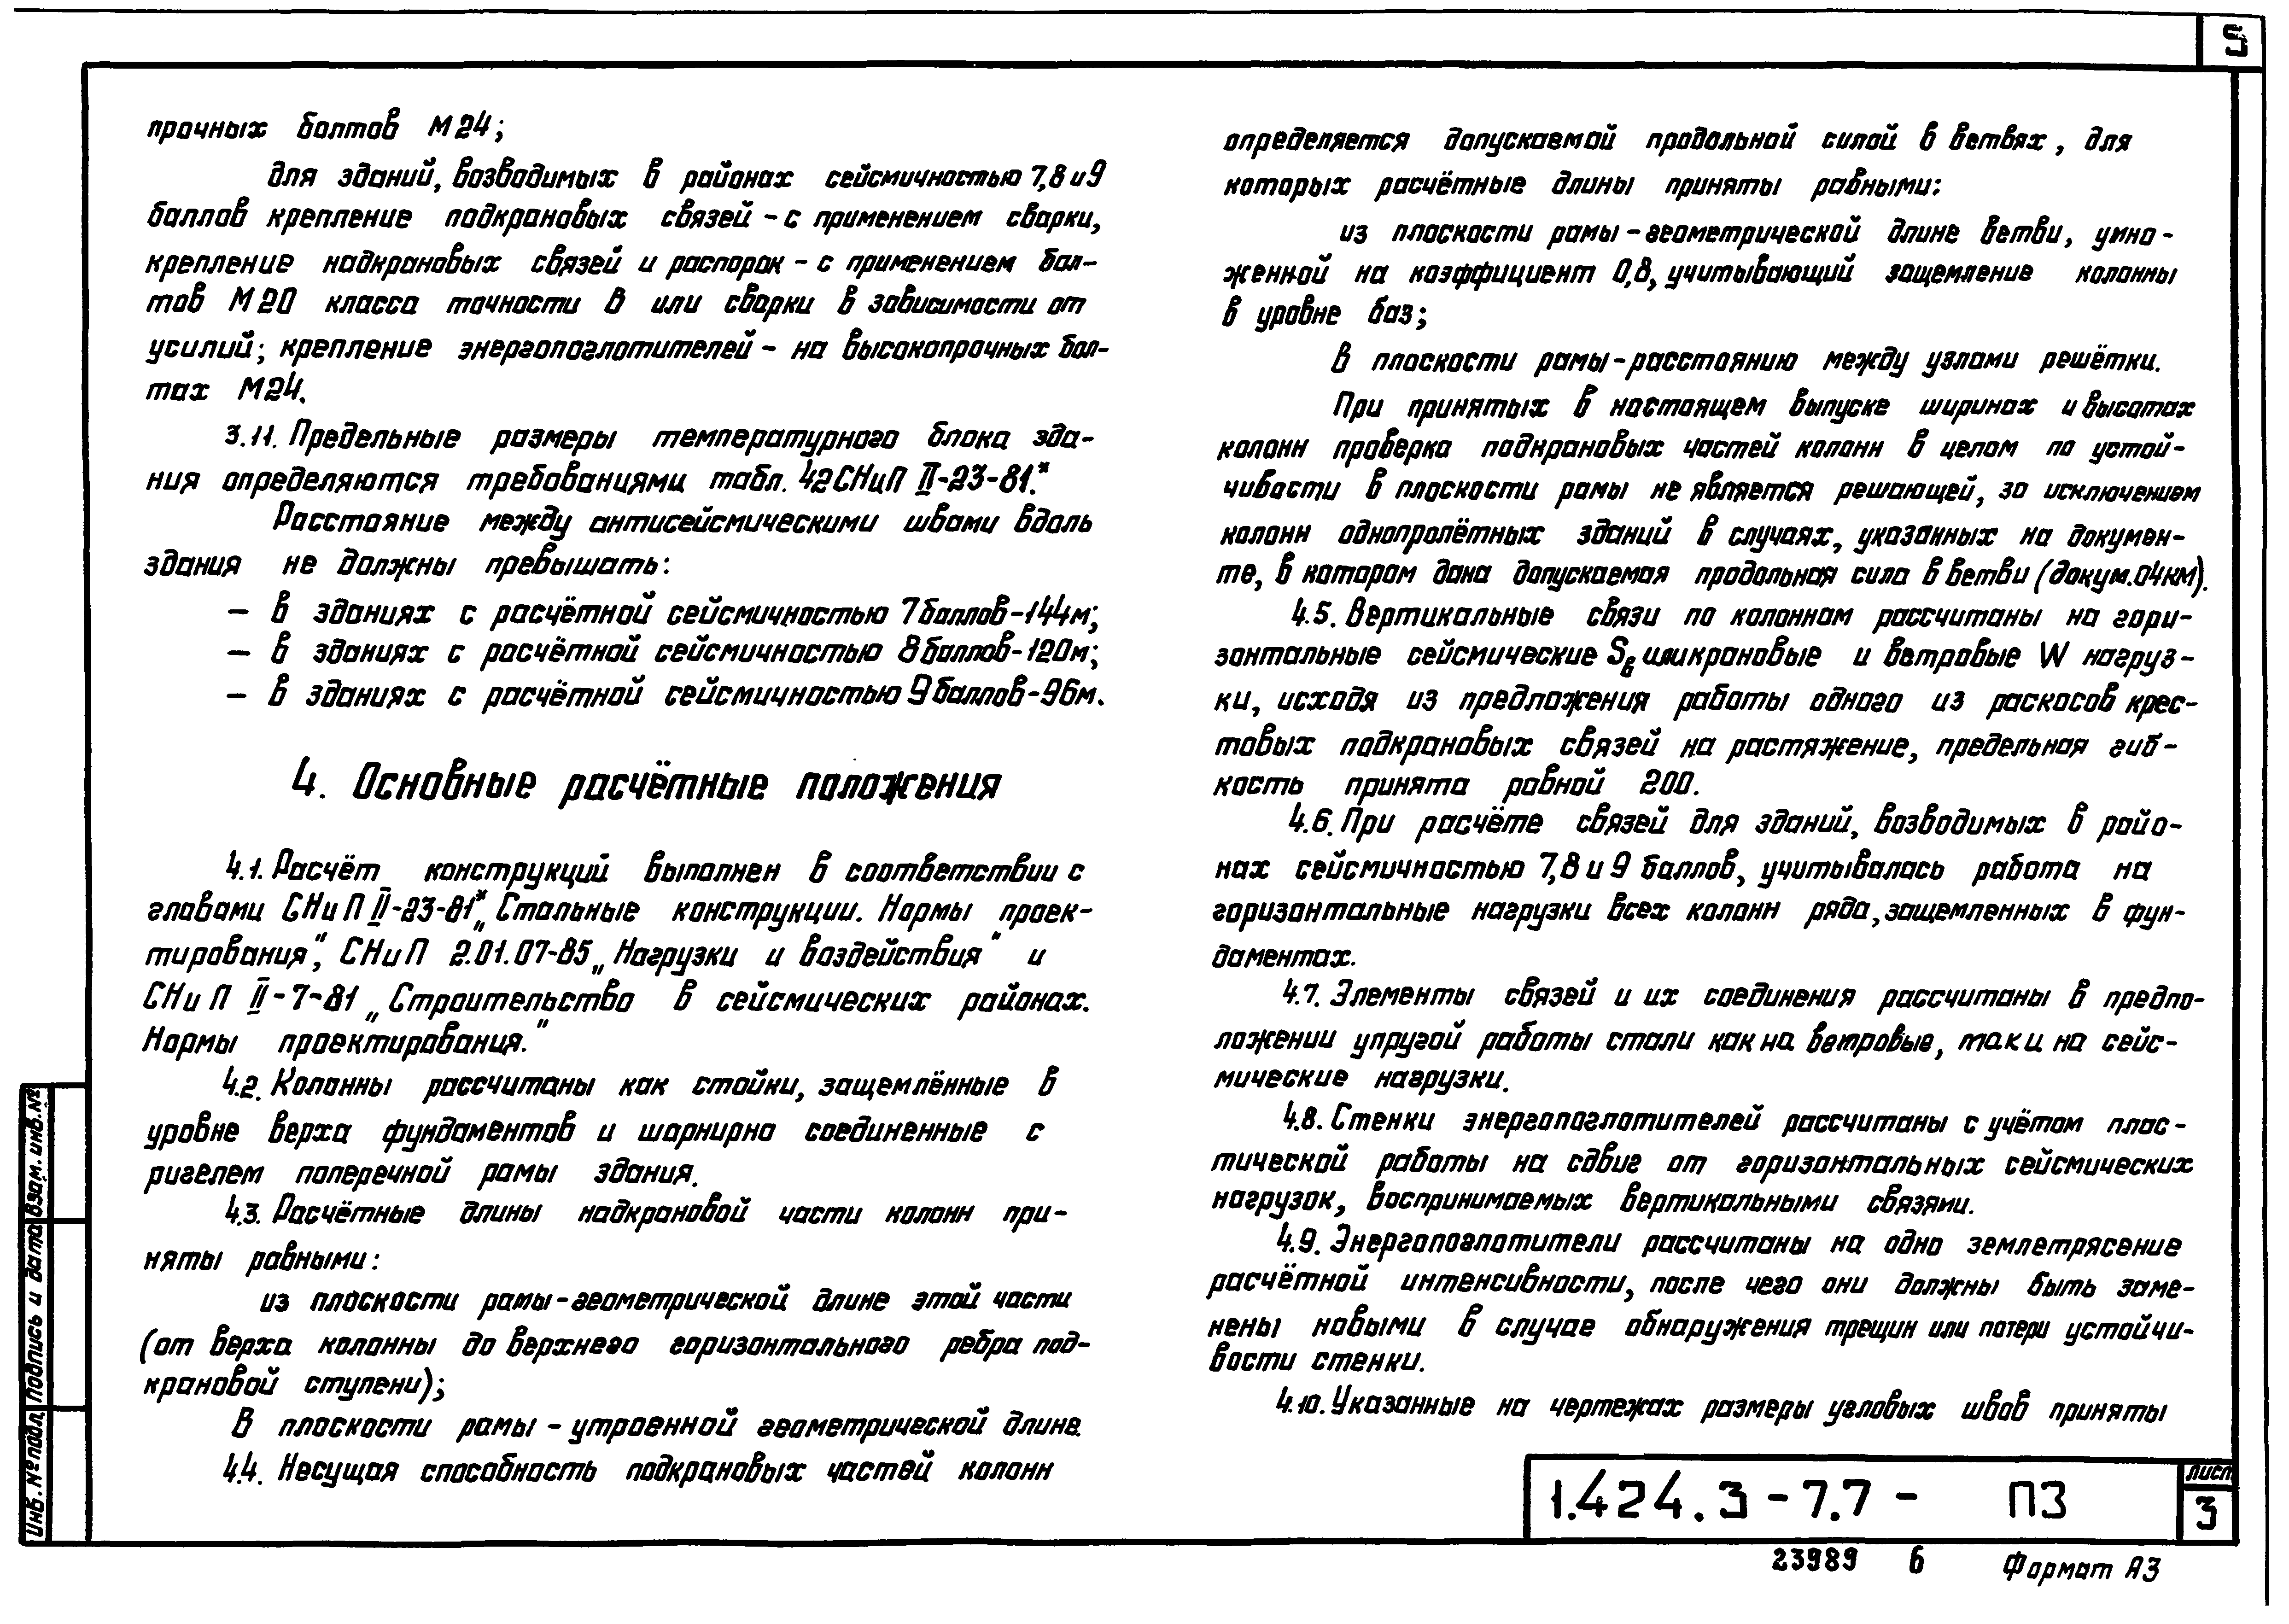 5
прочных болтов М24;
для зданий, возводимых в районах сейсмичностью 7,8 и 9
баллов крепление подкрановых связей – с применением сварки,
крепление надкрановых связей и распорок – с применением бол-
тов М20 класса точности В или сварки в зависимости от
усилий; крепление энергопоглотителей – на высокопрочных бол-
тах М24.
3.11. Предельные размеры температурного блока зда-
ния определяются требованиями табл. 42 СНиП II-23-81.*
Расстояние между антисейсмическими швами вдоль
здания не должны превышать:
– в зданиях с расчётной сейсмичностью 7 баллов – 144м;
– в зданиях с расчётной сейсмичностью 8 баллов – 120м;
– в зданиях с расчётной сейсмичностью 9 баллов – 96м.
4. Основные расчётные положения
4.1. Расчёт конструкций выполнен в соответствии с
главами СНиП II-23-81* „Стальные конструкции. Нормы проек-
тирования“, СНиП 2.01.07-85 „Нагрузки и воздействия“ и
СНиП II-7-81 „Строительство в сейсмических районах.
Нормы проектирования.“
4.2. Колонны рассчитаны как стойки, защемлённые в
уровне верха фундаментов и шарнирно соединенные с
ригелем поперечной рамы здания.
4.3. Расчётные длины надкрановой части колонн при-
няты равными:
из плоскости рамы – геометрической длине этой части
(от верха колонны до верхнего горизонтального ребра под-
крановой ступени);
В плоскости рамы – утроенной геометрической длине.
4.4. Несущая способность подкрановых частей колонн
определяется допускаемой продольной силой в ветвях, для
которых расчётные длины приняты равными:
из плоскости рамы – геометрической длине ветви, умно-
женной на коэффициент 0,8, учитывающий защемление колонны
в уровне баз;
В плоскости рамы – расстоянию между узлами решётки.
При принятых в настоящем выпуске ширинах и высотах
колонн проверка подкрановых частей колонн в целом по устой-
чивости в плоскости рамы не является решающей, за исключением
колонн однопролётных зданий в случаях, указанных на докумен-
те, в котором дана допускаемая продольная сила в ветви (докум.04КМ).
4.5. Вертикальные связи по колоннам рассчитаны на гори-
зонтальные сейсмические S или крановые и ветровые W нагруз-
ки, исходя из предложения работы одного из раскосов крес-
товых подкрановых связей на растяжение, предельная гиб-
кость принята равной 200.
4.6. При расчёте связей для зданий, возводимых в райо-
нах сейсмичностью 7,8 и 9 баллов, учитывалась работа на
горизонтальные нагрузки всех колонн ряда, защемленных в фун-
даментах.
4.7. Элементы связей и их соединения рассчитаны в предпо-
ложении упругой работы стали как на ветровые, так и на сейс-
мические нагрузки.
4.8. Стенки энергопоглотителей рассчитаны с учётом плас-
тической работы на сдвиг от горизонтальных сейсмических
нагрузок, воспринимаемых вертикальными связями.
4.9. Энергопоглотители рассчитаны на одно землетрясение
расчётной интенсивности, после чего они должны быть заме-
нены новыми в случае обнаружения трещин или потери устойчи-
вости стенки.
4.10. Указанные на чертежах размеры угловых швов приняты
Инв. № подл. Подпись и дата Взам. инв. №
1.424.3-7.7- ПЗ
Лист
3
23989 6 Формат А3